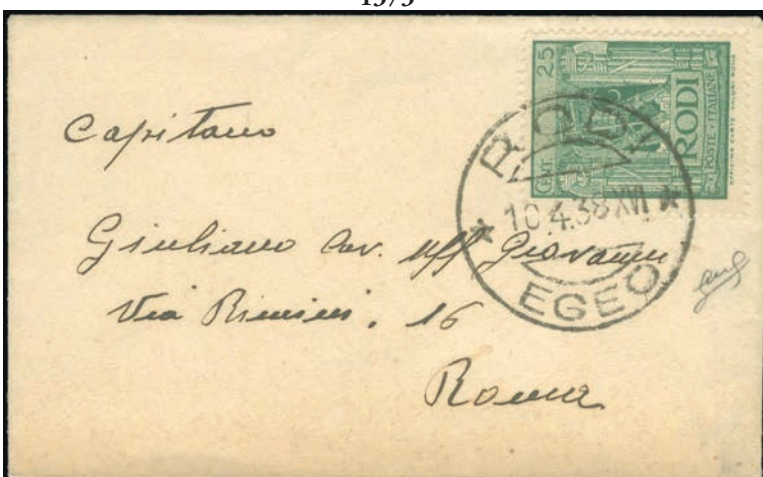 1575
CENT 25
RODI
POSTE ITALIANE
RODI
10.4.38 XVI
EGEO
Capitano
Giuliano Cav. Uff Giovanni
Via Rimini, 16
Roma